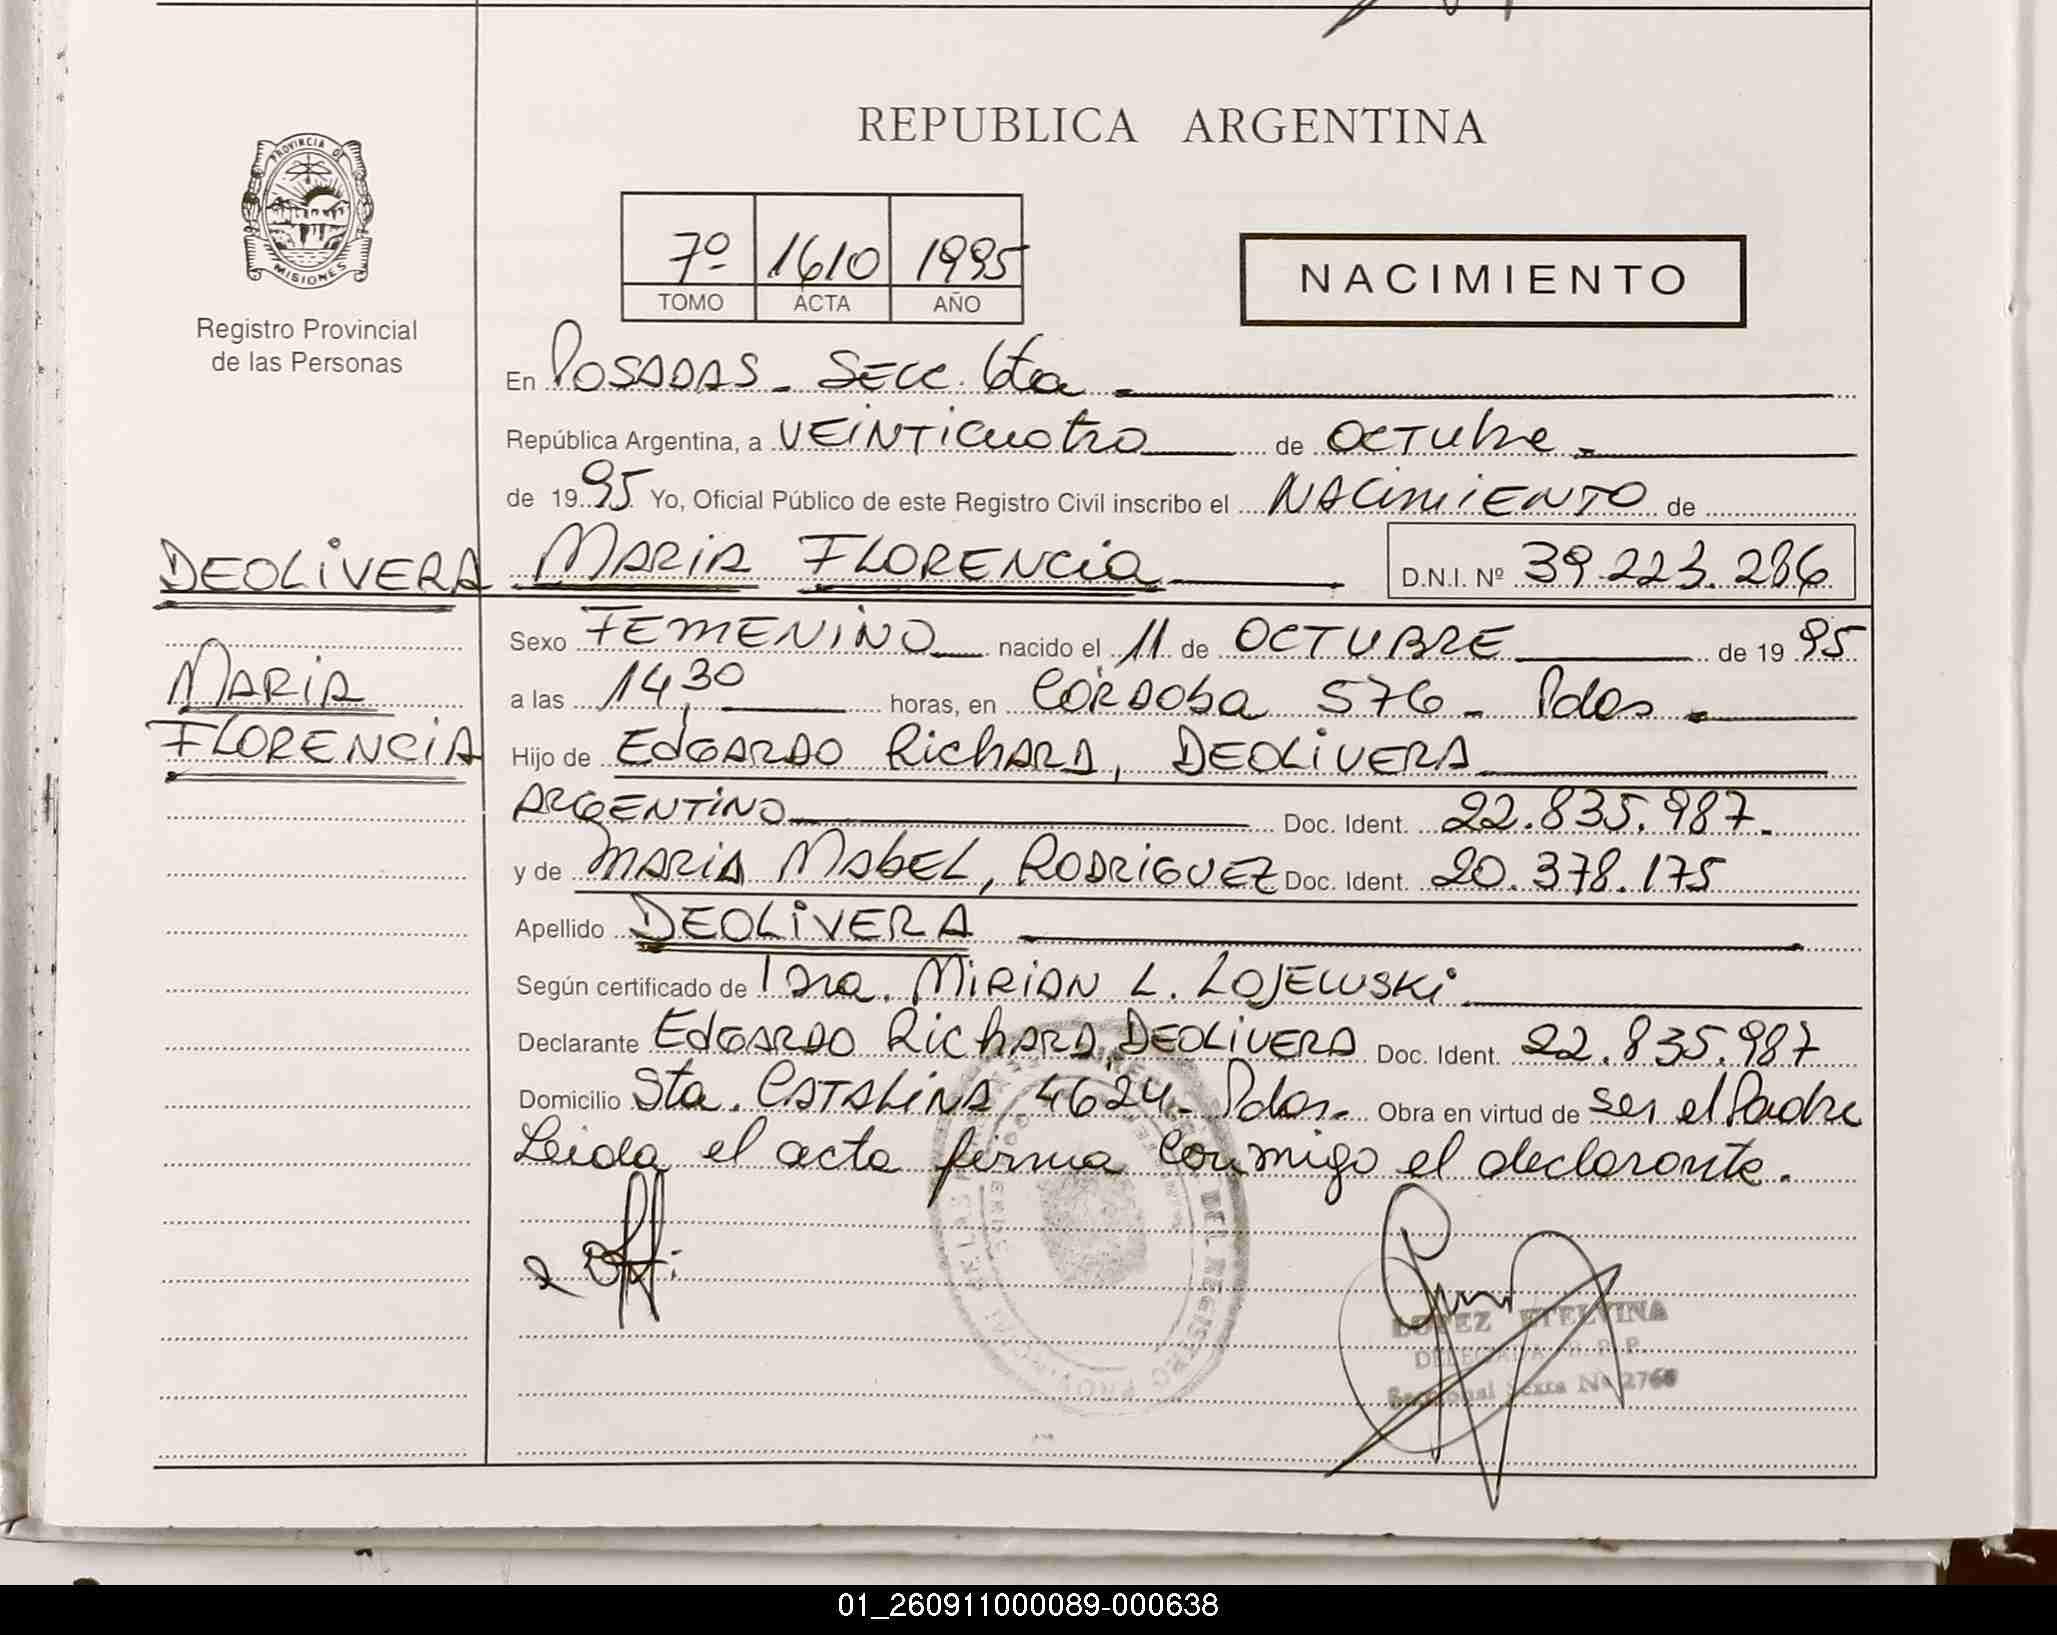 REPUBLICA ARGENTINA
PROVINCIA DE
MISIONES
Registro Provincial
de las Personas
7º 1610 1995
TOMO ACTA AÑO
NACIMIENTO
En POSADAS - SECC. 6ta -
República Argentina, a VEINTICUATRO de OCTUBRE -
de 1995 Yo, Oficial Público de este Registro Civil inscribo el NACIMIENTO de
DEOLIVERA MARIA FLORENCIA D.N.I. Nº 39.223.286
Sexo FEMENINO nacido el 11 de OCTUBRE de 1995
MARIA
a las 14,30 horas, en CORDOBA 576 - Pdas -
FLORENCIA
Hijo de EDGARDO RICHARD, DEOLIVERA
ARGENTINO Doc. Ident. 22.835.987.
y de MARIA MABEL, RODRIGUEZ Doc. Ident. 20.378.175
Apellido DEOLIVERA
Según certificado de Dra. MIRIAN L. LOJEWSKI
Declarante EDGARDO RICHARD, DEOLIVERA Doc. Ident. 22.835.987
Domicilio Sta. CATALINA 4624 - Pdas - Obra en virtud de ser el Padre
Leida el acta firma conmigo el declarante.
LOPEZ ETELVINA
DELEGADA R. P. P.
Seccional Sexta Nº
01_260911000089-000638